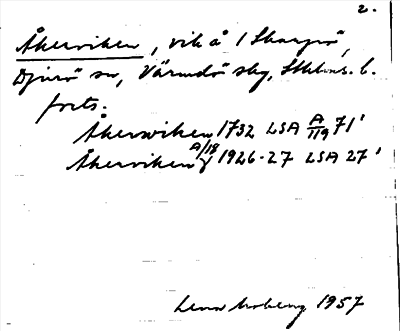 2.
Åkerviken, vik å 1 Skarpö,
Djurö sn, Värmdö skg, Sthlms. l.
forts.
Åkerwiken 1732 LSA A/119 71'
Åkerviken A/18 1926-27 LSA 27'
Lena Moberg 1957